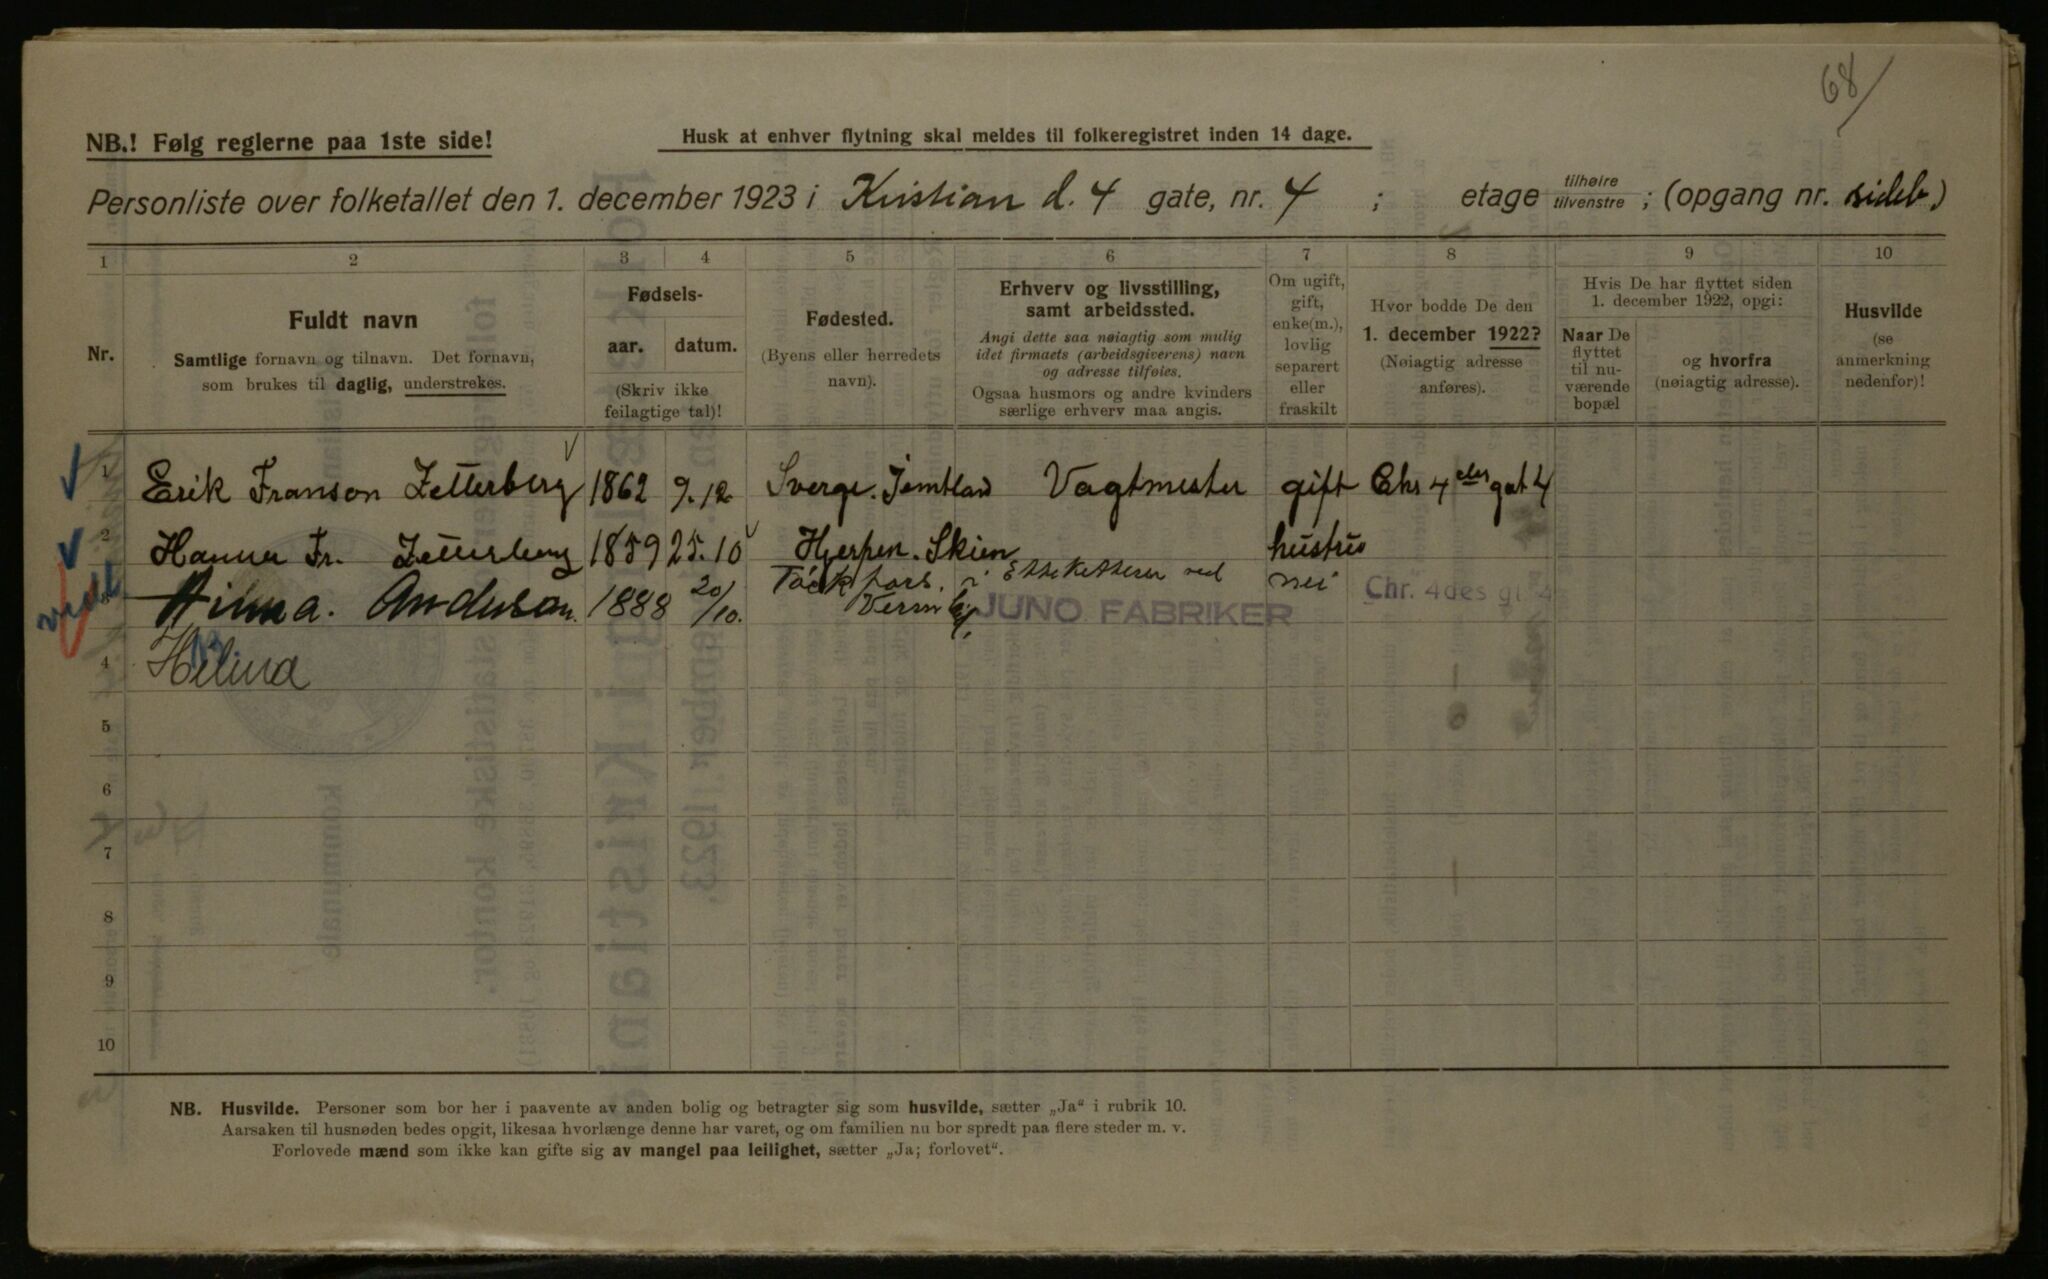 68/
NB.! Følg reglerne paa 1ste side!
Husk at enhver flytning skal meldes til folkeregistret inden 14 dage.
Personliste over folketallet den 1. december 1923 i Kristian d. 4 gate, nr. 4 ; etage tilhøire tilvenstre ; (opgang nr. sideb.)
1 2 3 4 5 6 7 8 9 10
Nr.
Fuldt navn
Samtlige fornavn og tilnavn. Det fornavn,
som brukes til daglig, understrekes.
Fødsels-
aar. datum.
(Skriv ikke
feilagtige tal)!
Fødested.
(Byens eller herredets
navn).
Erhverv og livsstilling,
samt arbeidssted.
Angi dette saa nøiagtig som mulig
idet firmaets (arbeidsgiverens) navn
og adresse tilføies.
Ogsaa husmors og andre kvinders
særlige erhverv maa angis.
Om ugift,
gift,
enke(m.),
lovlig
separert
eller
fraskilt
Hvor bodde De den
1. december 1922?
(Nøiagtig adresse
anføres).
Hvis De har flyttet siden
1. december 1922, opgi:
Naar De
flyttet
til nu-
værende
bopæl
og hvorfra
(nøiagtig adresse).
Husvilde
(se
anmerkning
nedenfor)!
1 Erik Franson Zetterberg 1862 9.12. Sverge. Jemtland Vagtmester gift Chr 4 des gat 4
2 Hanna Fr. Zetterberg 1859 25.10 Hjerpen. Skien hustru
Hilma. Anderson. 1888 20/10. Töckfors. i Ettiketterer ved nei Chr. 4des gt. 4
JUNO FABRIKER
4 Helma
5
6
7
8
9
10
NB. Husvilde. Personer som bor her i paavente av anden bolig og betragter sig som husvilde, sætter „Ja“ i rubrik 10.
Aarsaken til husnøden bedes opgit, likesaa hvorlænge denne har varet, og om familien nu bor spredt paa flere steder m. v.
Forlovede mænd som ikke kan gifte sig av mangel paa leilighet, sætter „Ja; forlovet“.